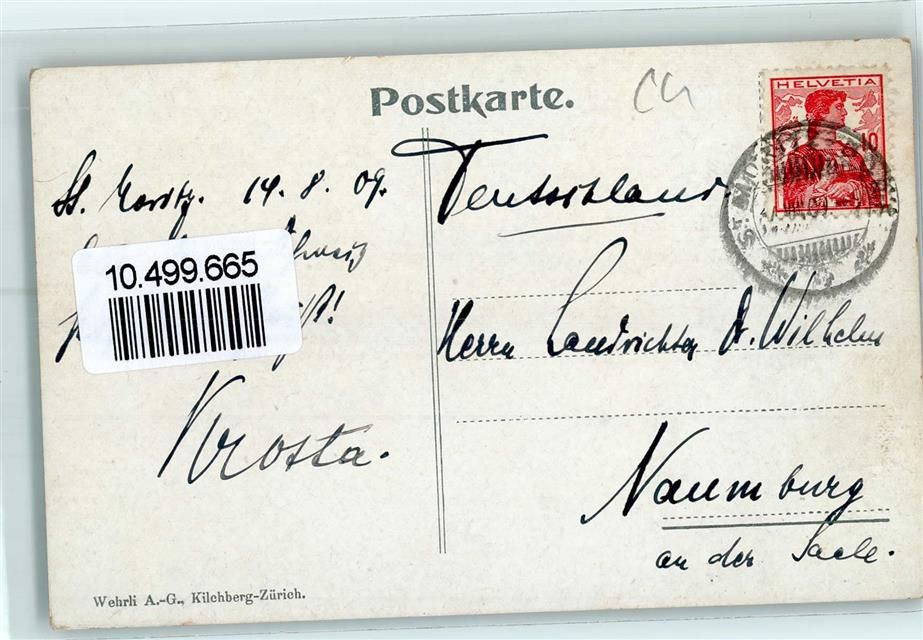 Postkarte.
St. Moritz. 14. 8. 09.
10.499.665
Krosta.
Wehrli A.-G., Kilchberg-Zürich.
HELVETIA
10
Deutschland.
Herrn Landrichter Dr. Wilhelm
Naumburg
an der Saale.